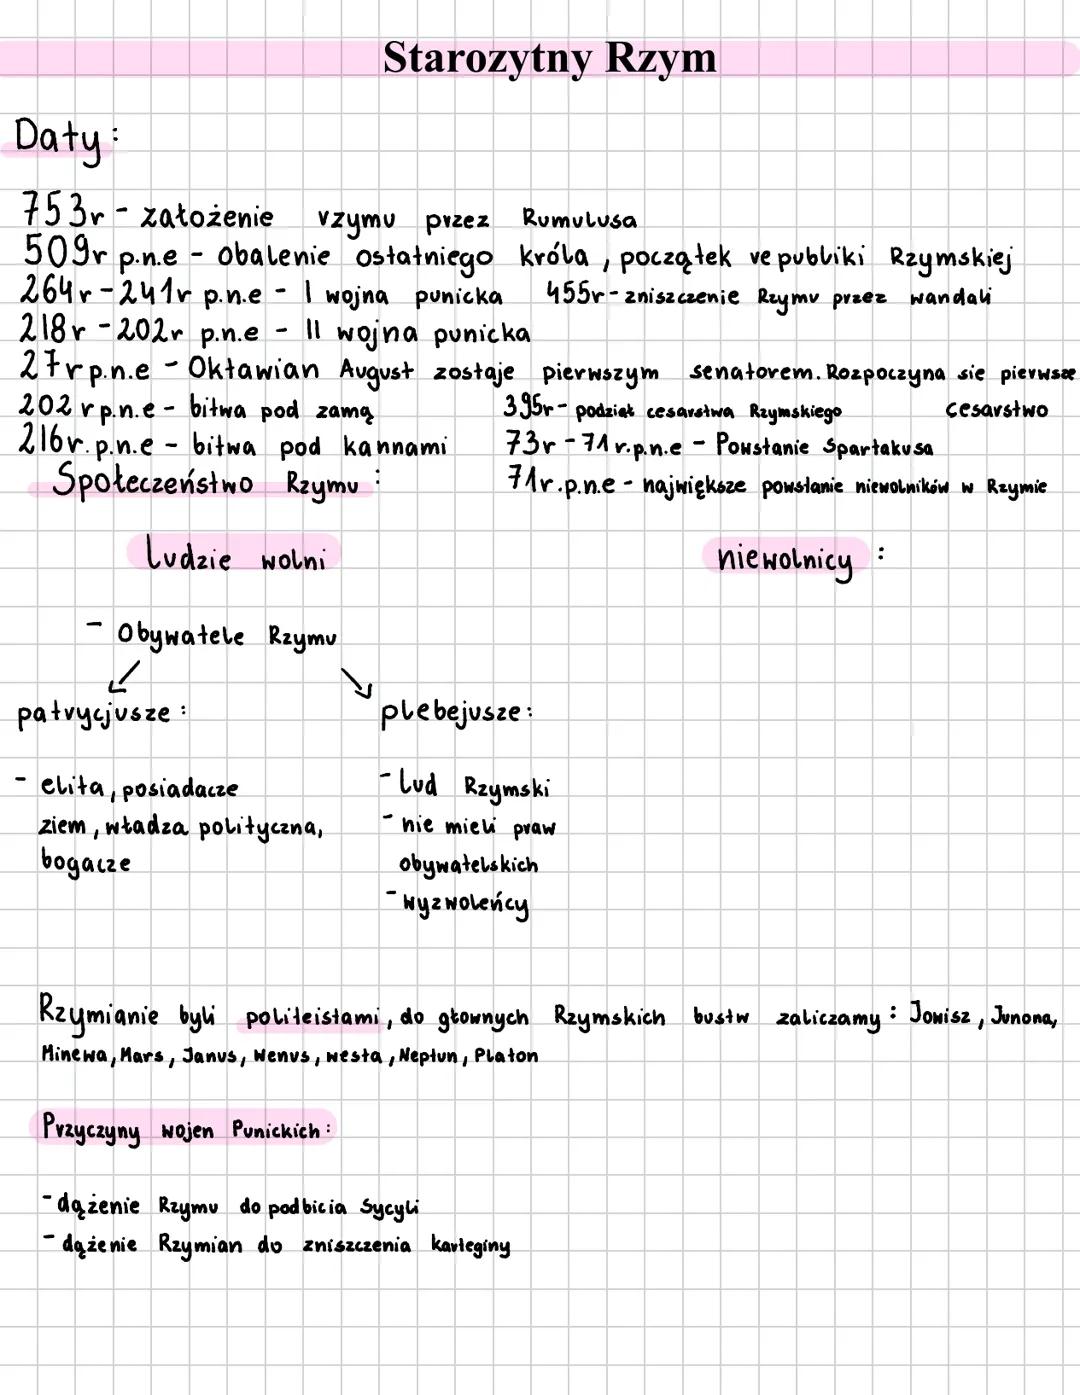 Starozytny Rzym
Daty:
753r - założenie rzymu przez Rumulusa
509r p.n.e - obalenie ostatniego króla, początek republiki Rzymskiej
264r-241r p.n.e - I wojna punicka 455r-zniszczenie Rzymu przez wandali
218r-202r p.n.e - II wojna punicka
27r p.n.e - Oktawian August zostaje pierwszym senatorem. Rozpoczyna sie pierwsze
202 r p.n.e - bitwa pod zamą 395r- podział cesarstwa Rzymskiego cesarstwo
216r. p.n.e - bitwa pod kannami 73r-71r.p.n.e - Powstanie Spartakusa
Społeczeństwo Rzymu: 71r.p.n.e - największe powstanie niewolników w Rzymie
Ludzie wolni niewolnicy:
- Obywatele Rzymu
patrycjusze: plebejusze:
- elita, posiadacze
ziem, władza polityczna,
bogacze
- lud Rzymski
- nie mieli praw
obywatelskich
- wyzwoleńcy
Rzymianie byli politeistami, do głownych Rzymskich bustw zaliczamy: Jowisz, Junona,
Minewa, Mars, Janus, Wenus, westa, Neptun, Platon
Przyczyny wojen Punickich:
- dążenie Rzymu do podbicia Sycyli
- dążenie Rzymian do zniszczenia karteginy